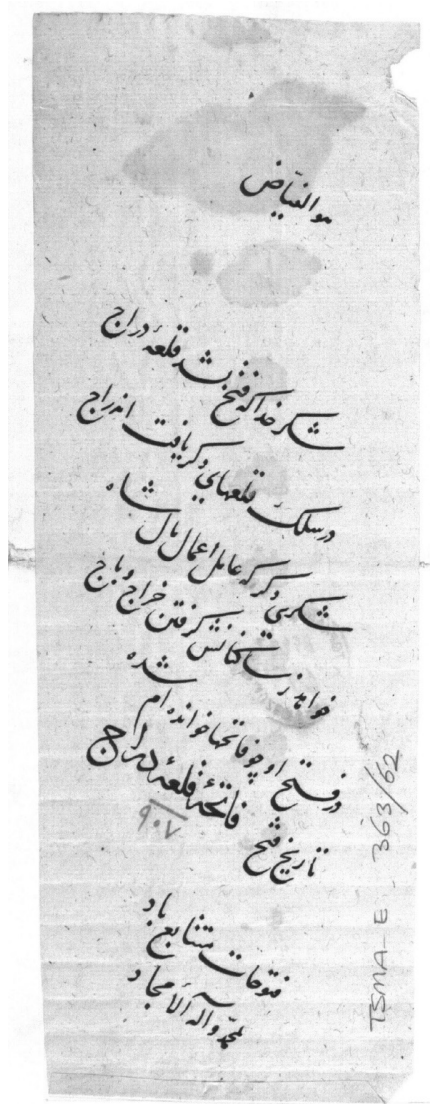 هو الفیاض
شکر خدا که فتح شد قلعهٔ دراج
در سلک قلعهای دکر یافت اندراج
شکری دکر که عامل اعمال مال شاه
خواهد ز ساکنانش کرفتن خراج و باج
در فتح او چو فاتحها خوانده ام شده
تاریخ فتح فاتحهٔ قلعهٔ دراج
۹۰۷
فتوحات متتابع باد
بمحمد وآله الأمجاد
TSMA-E 363/62